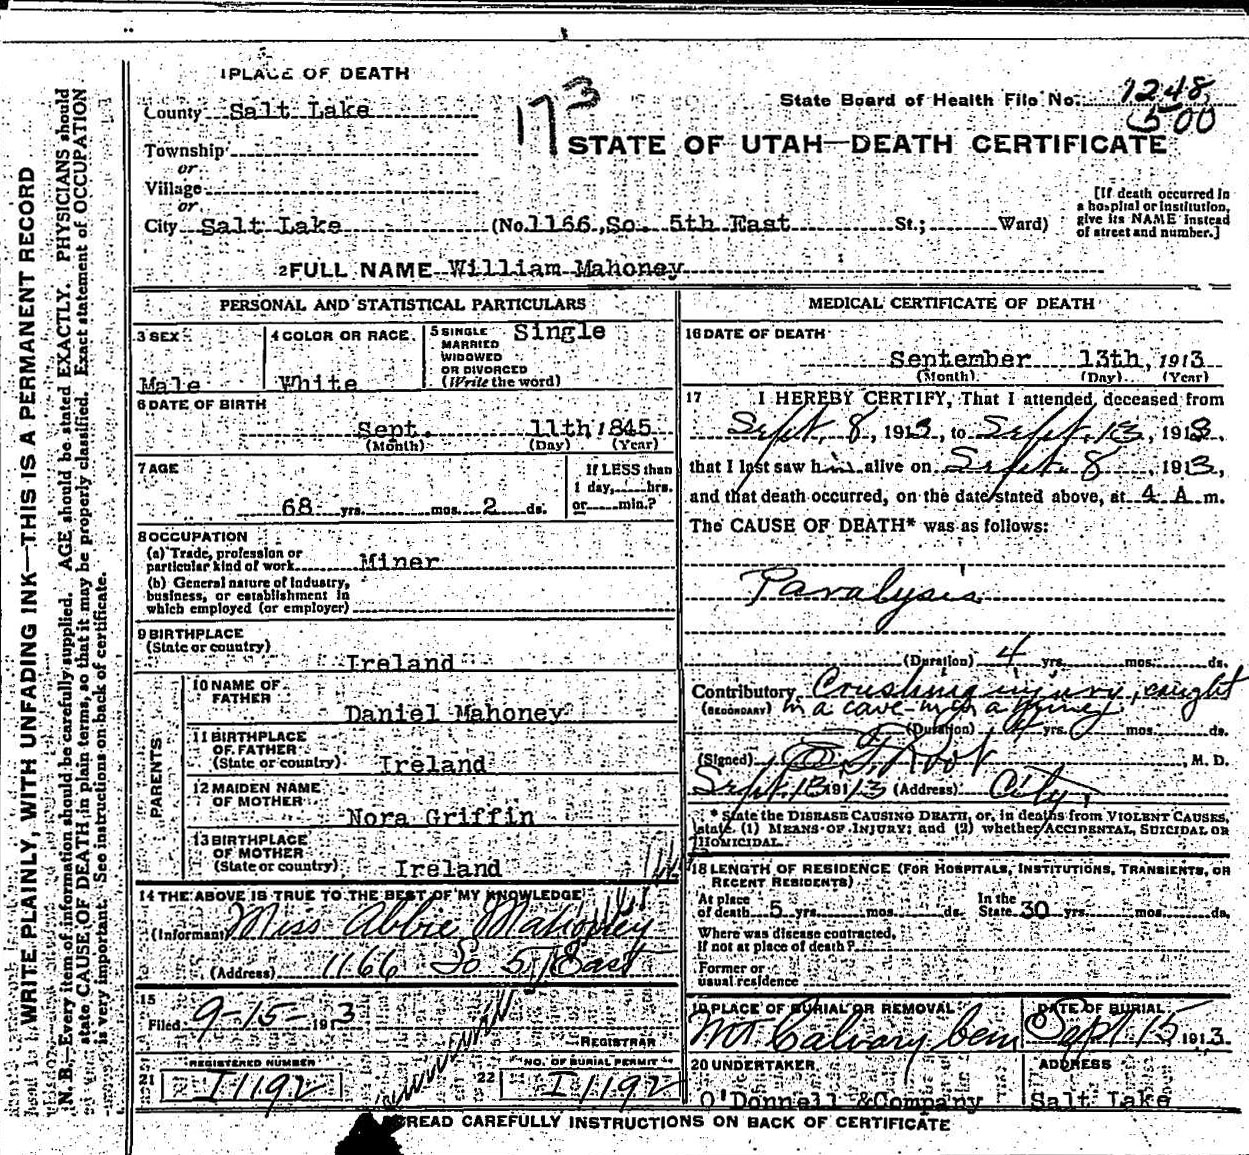 1 PLACE OF DEATH
County Salt Lake
Township
or
Village
or
City Salt Lake (No. 1166, So. 5th East St.; Ward)
173
State Board of Health File No. 1248
500
STATE OF UTAH—DEATH CERTIFICATE
[If death occurred in
a hospital or institution,
give its NAME instead
of street and number.]
2 FULL NAME William Mahoney
WRITE PLAINLY, WITH UNFADING INK—THIS IS A PERMANENT RECORD
N. B.—Every item of information should be carefully supplied. AGE should be stated EXACTLY. PHYSICIANS should
state CAUSE OF DEATH in plain terms, so that it may be properly classified. Exact statement of OCCUPATION
is very important. See instructions on back of certificate.
PERSONAL AND STATISTICAL PARTICULARS
3 SEX
Male
4 COLOR OR RACE
White
5 SINGLE
MARRIED
WIDOWED
OR DIVORCED
(Write the word)
Single
6 DATE OF BIRTH
Sept. 11th 1845
(Month) (Day) (Year)
7 AGE
68 yrs. mos. 2 ds.
If LESS than
1 day, hrs.
or min.?
8 OCCUPATION
(a) Trade, profession or
particular kind of work Miner
(b) General nature of industry,
business, or establishment in
which employed (or employer)
9 BIRTHPLACE
(State or country)
Ireland
PARENTS
10 NAME OF
FATHER
Daniel Mahoney
11 BIRTHPLACE
OF FATHER
(State or country) Ireland
12 MAIDEN NAME
OF MOTHER
Nora Griffin
13 BIRTHPLACE
OF MOTHER
(State or country) Ireland
14 THE ABOVE IS TRUE TO THE BEST OF MY KNOWLEDGE
(Informant Miss Abbie Mahoney
(Address) 1166 So 5 East
15
Filed 9-15- 1913
REGISTRAR
REGISTERED NUMBER
21 I1192
NO. OF BURIAL PERMIT
22 I1192
MEDICAL CERTIFICATE OF DEATH
16 DATE OF DEATH
September 13th, 1913
(Month) (Day) (Year)
17 I HEREBY CERTIFY, That I attended, deceased from
Sept. 8, 1913, to Sept. 13, 1913,
that I last saw him alive on Sept. 8, 1913,
and that death occurred, on the date stated above, at 4 A m.
The CAUSE OF DEATH* was as follows:
Paralysis
(Duration) 4 yrs. mos. ds.
Contributory Crushing injury, caught
(SECONDARY) in a cave in a mine
(Duration) 4 yrs. mos. ds.
(Signed) Root, M. D.
Sept. 13 1913 (Address) City.
* State the DISEASE CAUSING DEATH, or, in deaths from VIOLENT CAUSES,
state (1) MEANS OF INJURY; and (2) whether ACCIDENTAL, SUICIDAL OR
HOMICIDAL.
18 LENGTH OF RESIDENCE (FOR HOSPITALS, INSTITUTIONS, TRANSIENTS, OR
RECENT RESIDENTS)
At place
of death 5 yrs. mos. ds.
In the
State 30 yrs. mos. ds.
Where was disease contracted,
If not at place of death?
Former or
usual residence
19 PLACE OF BURIAL OR REMOVAL
Mt Calvary Cem
DATE OF BURIAL
Sept 15 1913.
20 UNDERTAKER
O'Donnell & Company
ADDRESS
Salt Lake
READ CAREFULLY INSTRUCTIONS ON BACK OF CERTIFICATE